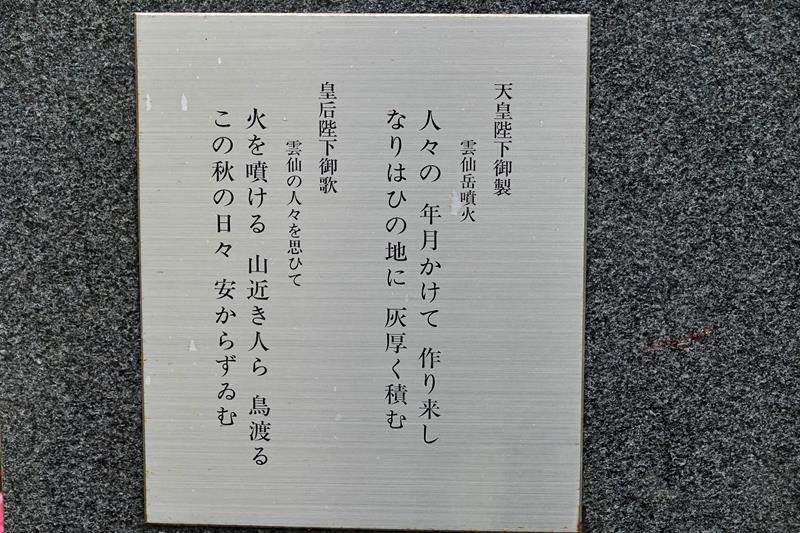 天皇陛下御製
雲仙岳噴火
人々の 年月かけて 作り来し
なりはひの地に 灰厚く積む
皇后陛下御歌
雲仙の人々を思ひて
火を噴ける 山近き人ら 鳥渡る
この秋の日々 安からずゐむ